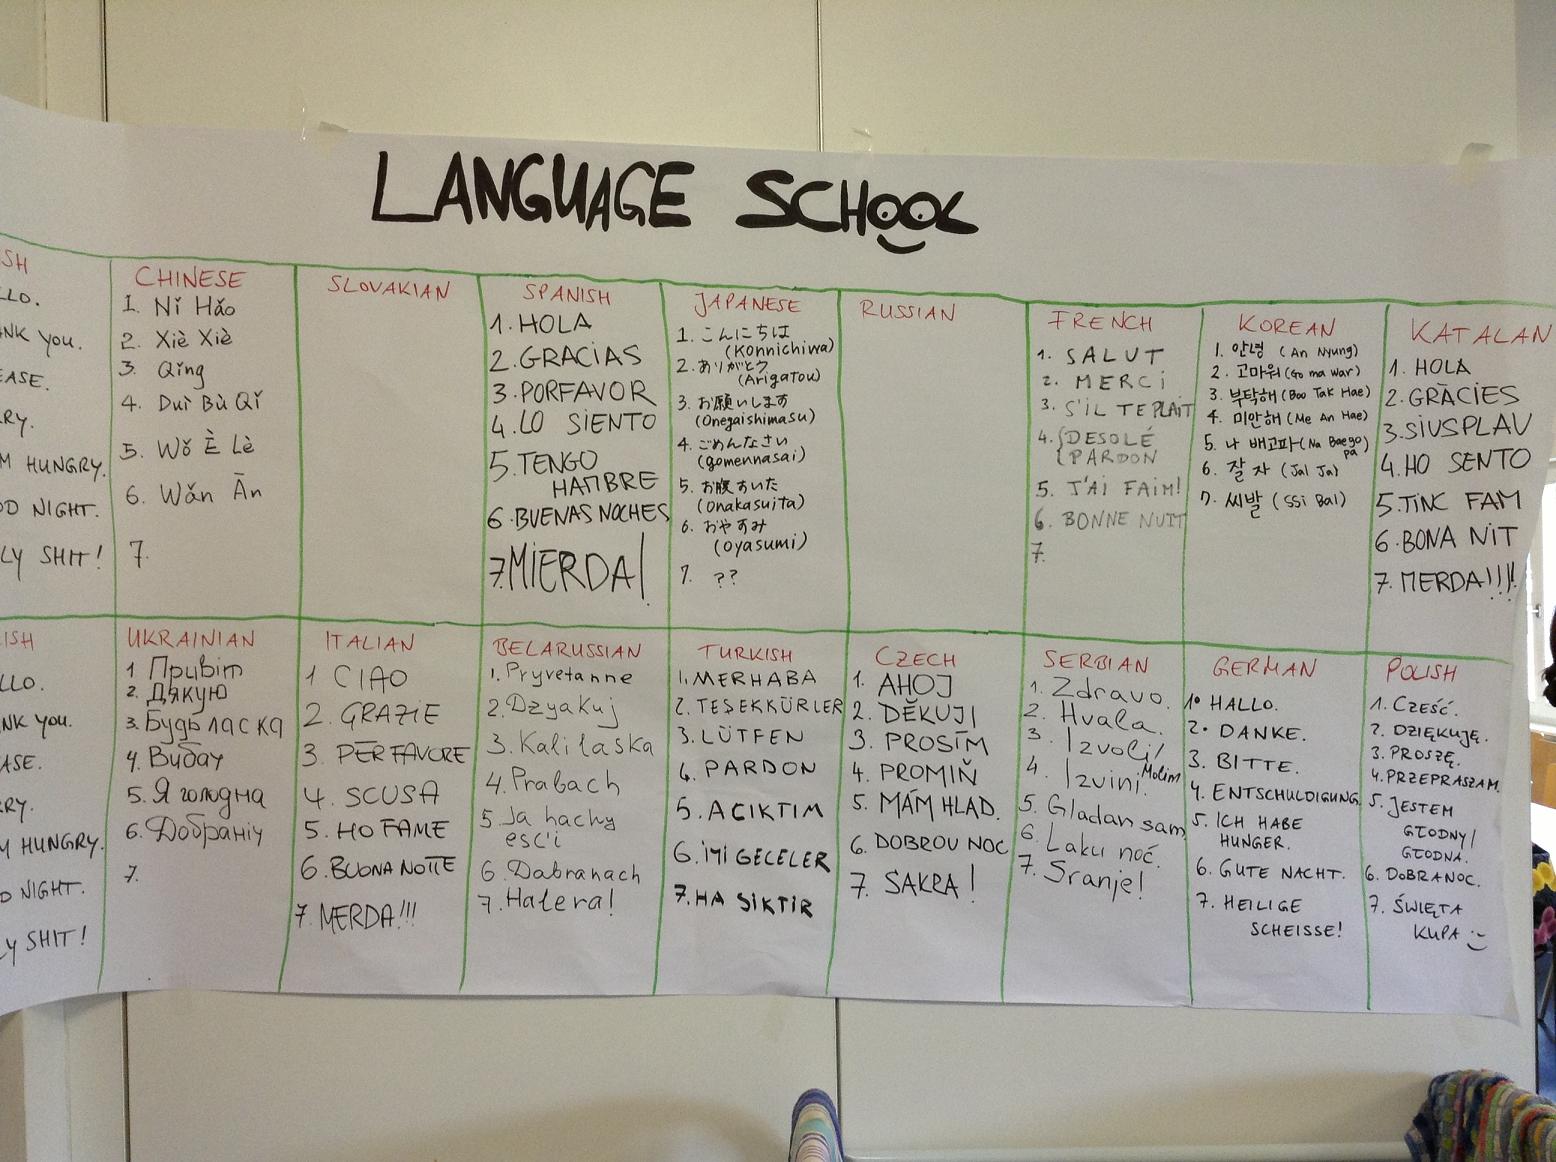 LANGUAGE SCHOOL
SH
LLO.
NK YOU.
EASE.
RRY.
M HUNGRY.
OD NIGHT.
LY SHIT!
CHINESE
1. Nǐ Hǎo
2. Xiè Xiè
3. Qǐng
4. Duì Bù Qǐ
5. Wǒ È Lè
6. Wǎn Ān
7.
SLOVAKIAN
SPANISH
1. HOLA
2. GRACIAS
3. PORFAVOR
4. LO SIENTO
5. TENGO
HAMBRE
6. BUENAS NOCHES
7. MIERDA!
JAPANESE
1. こんにちは
(Konnichiwa)
2. ありがとう
(Arigatou)
3. お願いします
(Onegaishimasu)
4. ごめんなさい
(gomennasai)
5. お腹すいた
(onakasuita)
6. おやすみ
(oyasumi)
7. ??
RUSSIAN
FRENCH
1. SALUT
2. MERCI
3. S'IL TE PLAIT
4. {DESOLÉ
{PARDON
5. J'AI FAIM!
6. BONNE NUIT
7.
KOREAN
1. 안녕 (An Nyung)
2. 고마워 (Go ma war)
3. 부탁해 (Boo Tak Hae)
4. 미안해 (Me An Hae)
5. 나 배고파 (Na Baego
pa)
6. 잘 자 (Jal Ja)
7. 씨발 (Ssi Bal)
KATALAN
1. HOLA
2. GRÀCIES
3. SIUSPLAU
4. HO SENTO
5. TINC FAM
6. BONA NIT
7. MERDA!!!!
ISH
LLO.
NK YOU.
ASE.
RRY.
M HUNGRY.
D NIGHT.
LY SHIT!
UKRAINIAN
1 Привіт
2. Дякую
3. Будь ласка
4. Вибач
5. Я голодна
6. Добраніч
7.
ITALIAN
1 CIAO
2. GRAZIE
3. PER FAVORE
4. SCUSA
5. HO FAME
6. BUONA NOTTE
7. MERDA!!!
BELARUSSIAN
1. Pryvetanne
2. Dzyakuj
3. Kali laska
4. Prabach
5 Ja hachy
esc'i
6. Dabranach
7. Halera!
TURKISH
1. MERHABA
2. TEŞEKKÜRLER
3. LÜTFEN
4. PARDON
5. ACIKTIM
6. İYİ GECELER
7. HA SİKTİR
CZECH
1. AHOJ
2. DĚKUJI
3. PROSÍM
4. PROMIŇ
5. MÁM HLAD.
6. DOBROU NOC
7. SAKRA!
SERBIAN
1. Zdravo.
2. Hvala.
3. Izvoli/
Molim
4. Izvini.
5. Gladan sam
6. Laku noć.
7. Sranje!
GERMAN
1. HALLO.
2. DANKE.
3. BITTE.
4. ENTSCHULDIGUNG.
5. ICH HABE
HUNGER.
6. GUTE NACHT.
7. HEILIGE
SCHEISSE!
POLISH
1. CZEŚĆ.
2. DZIĘKUJĘ.
3. PROSZĘ.
4. PRZEPRASZAM.
5. JESTEM
GŁODNY/
GŁODNA.
6. DOBRANOC.
7. ŚWIĘTA
KUPA :-)